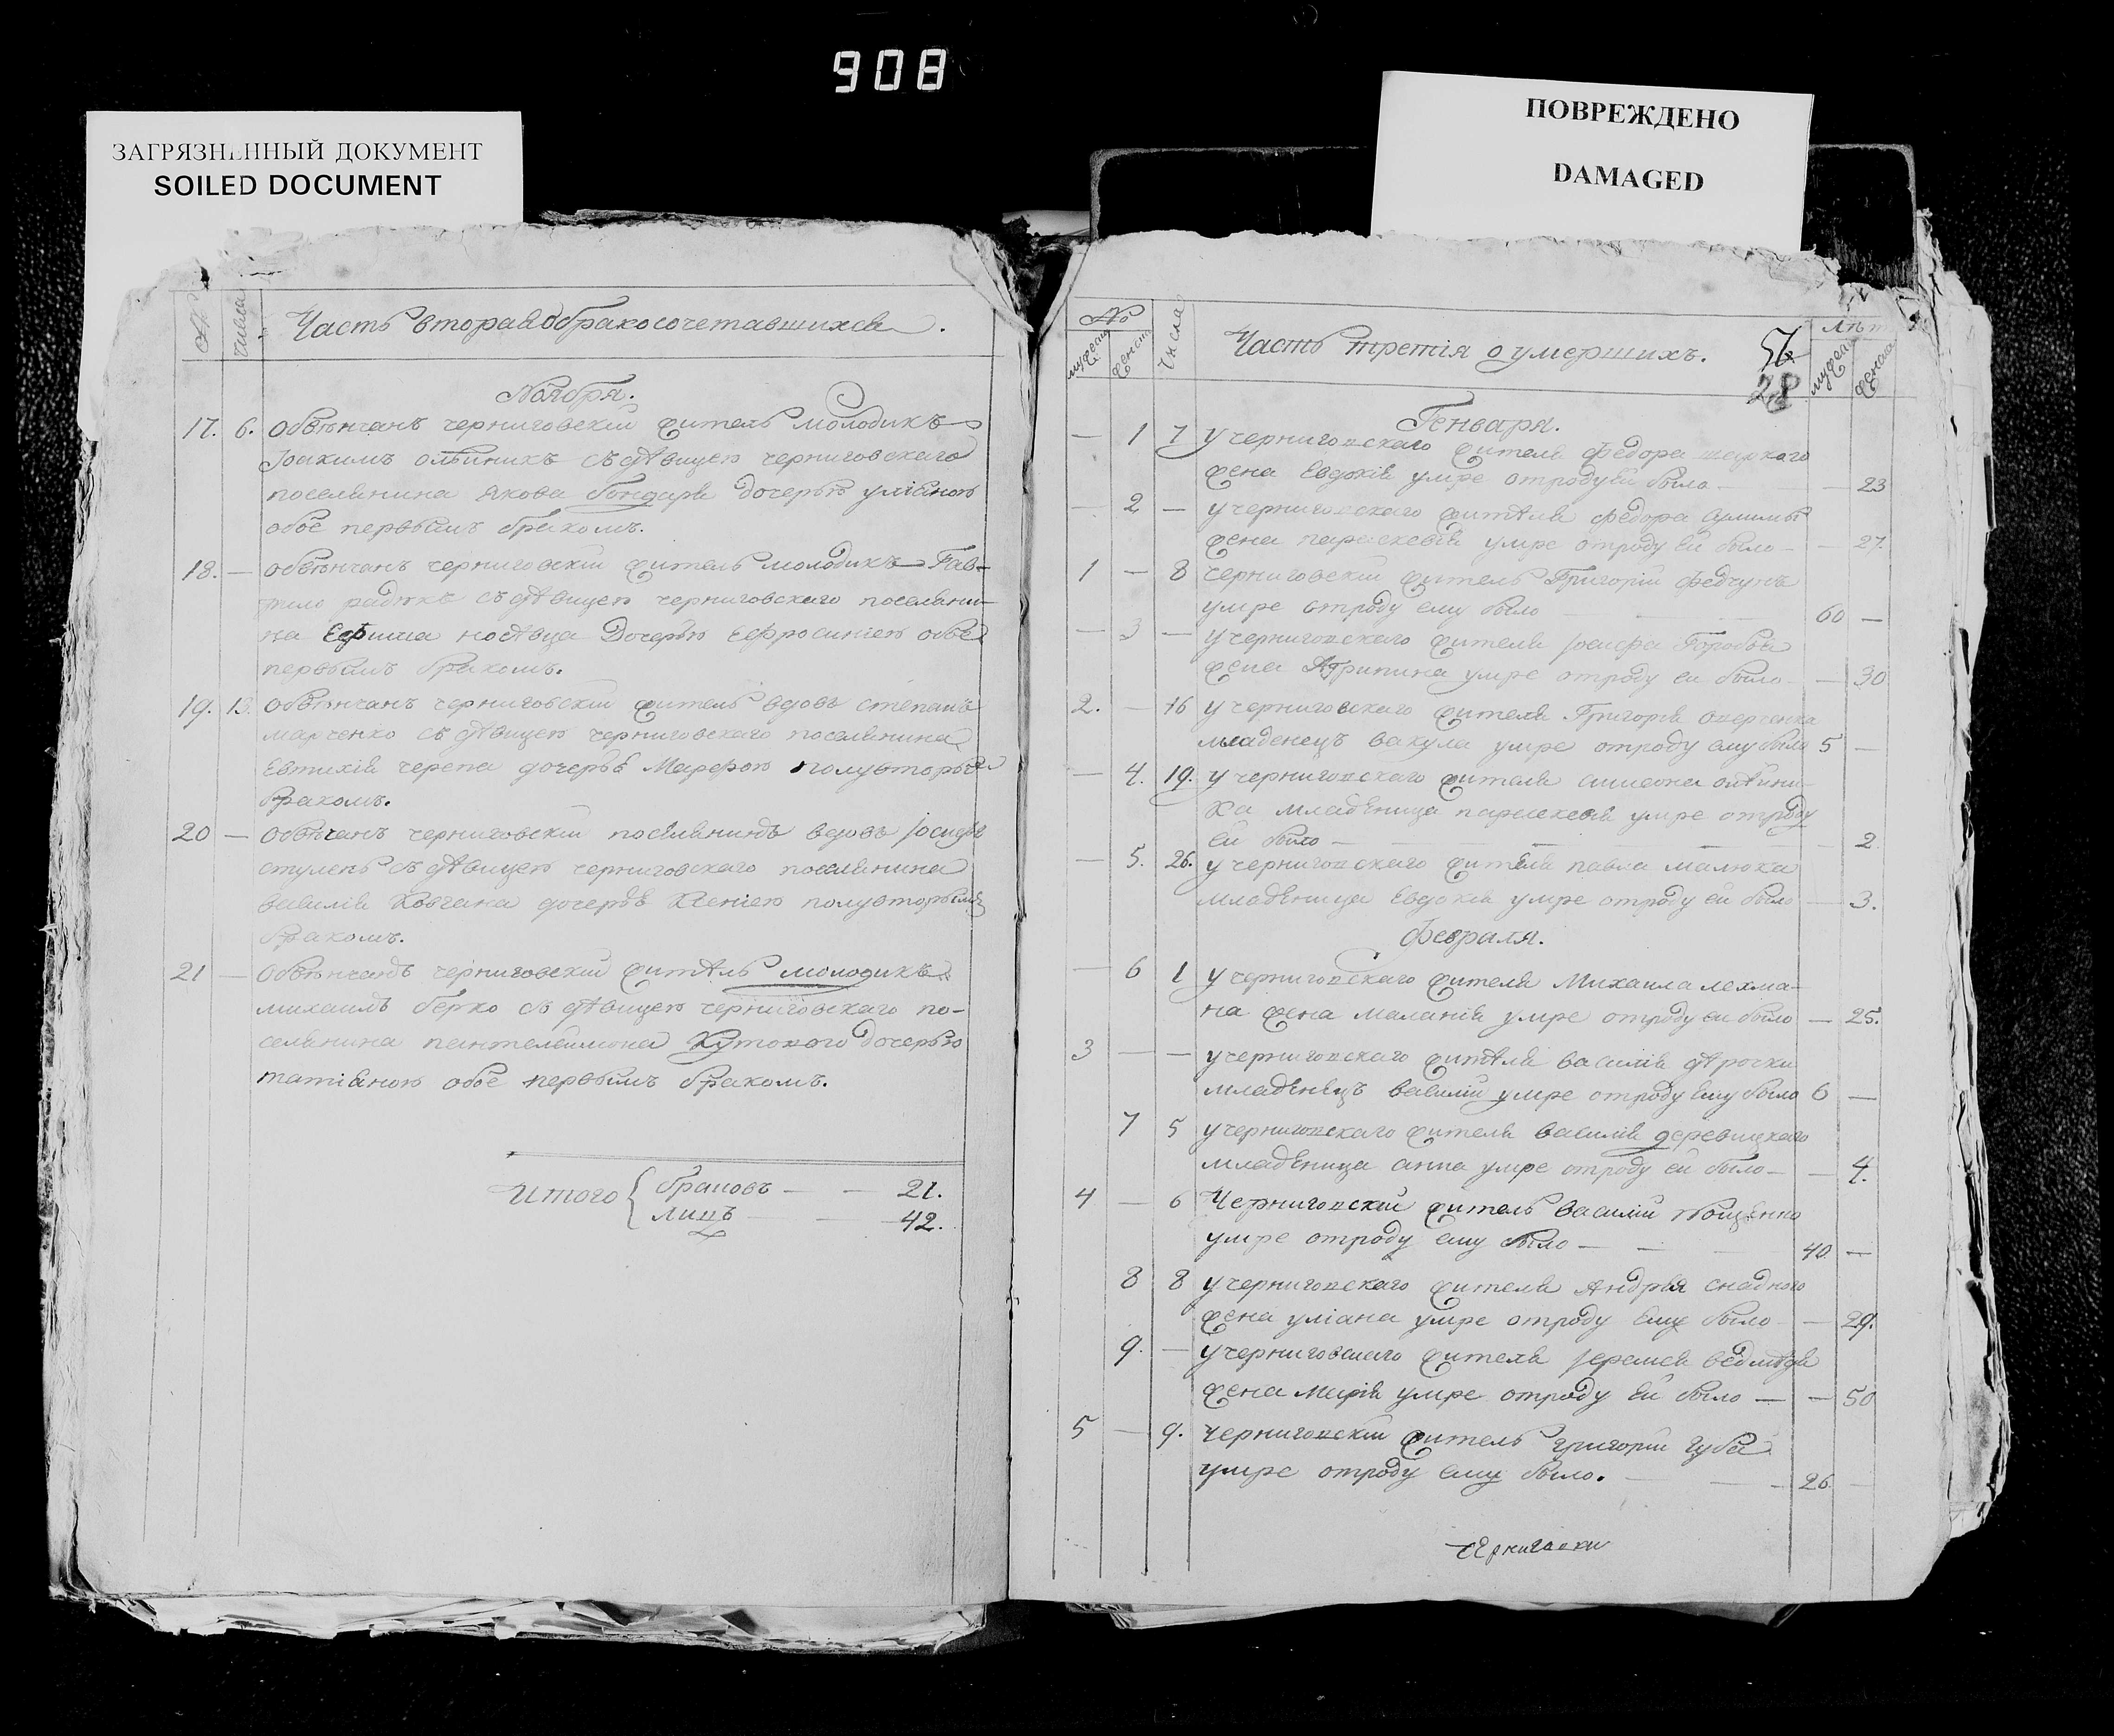 908
ЗАГРЯЗНЕННЫЙ ДОКУМЕНТ
SOILED DOCUMENT
ПОВРЕЖДЕНО
DAMAGED
№ числа Часть вторая о бракосочетавшихся.
Ноября.
17. 6. Обвѣнчанъ черниговскій житель молодикъ
Іоакимъ олѣиникъ съ дѣвицею черниговскаго
поселянина якова бондаря дочерью уліаною
обое первымъ бракомъ.
18. — обвѣнчанъ черниговскій житель молодикъ Гав-
рило съ дѣвицею черниговскаго поселяни-
на Ефима носовца дочерью Ефросиніею обое
первымъ бракомъ.
19. 13. Обвѣнчанъ черниговскій житель вдовъ степанъ
марченко съ дѣвицею черниговскаго поселянина
Евтихія черепа дочерью Марфою полувторымъ
бракомъ.
20 — Обвѣчанъ черниговскій поселянинъ вдовъ Іосифъ
съ дѣвицею черниговскаго поселянина
василія Ковгана дочерью Ксеніею полувторымъ
бракомъ.
21 — Обвѣнчанъ черниговскій житель молодикъ
михаилъ берко съ дѣвицею черниговскаго по-
селянина пантелеимона дочерью
татіаною обое первымъ бракомъ.
Итого браковъ — — 21.
лицъ — — 42.
№ числа Часть третія о умершихъ. 56 Лѣт
мужеск женска мужеск женска
28
Генваря.
— 1 7 у черниговскаго жителя федора
жена Евдокія умре отроду ей было — — 23
— 2 — у черниговскаго жителя федора
жена параскевія умре отроду ей было — — 27.
1 — 8 черниговскій житель Григорій федчунъ
умре отроду ему было — — 60 —
— 3 — у черниговскаго жителя Іосифа Горобця
жена Агрипина умре отроду ей было — — 30
2. — 16 у черниговскаго жителя Григорія
младенецъ вакула умре отроду ему было 5 —
— 4. 19. у черниговскаго жителя симеона олѣини-
ка младеница параскевія умре отроду
ей было — — — — 2.
— 5. 26. у черниговскаго жителя павла малюка
младеница Евдокія умре отроду ей было — 3.
Февраля.
— 6 1 у черниговскаго жителя Михаила лехма-
на жена маланія умре отроду ей было — 25.
3 — — у черниговскаго жителя василія
младенецъ василій умре отроду ему было 6 —
7 5 у черниговскаго жителя василія деревицкаго
младеница анна умре отроду ей было — — 4.
4 — 6 Черниговскій житель василій
умре отроду ему было — — — 40. —
8 8 у черниговскаго жителя Андрея снадного
жена уліана умре отроду ему было — — 29.
9. — у черниговскаго жителя Іеремея ведмедя
жена марія умре отроду ей было — — 50
5 — 9. Черниговскій житель григорій губа
умре отроду ему было. — — — 26. —